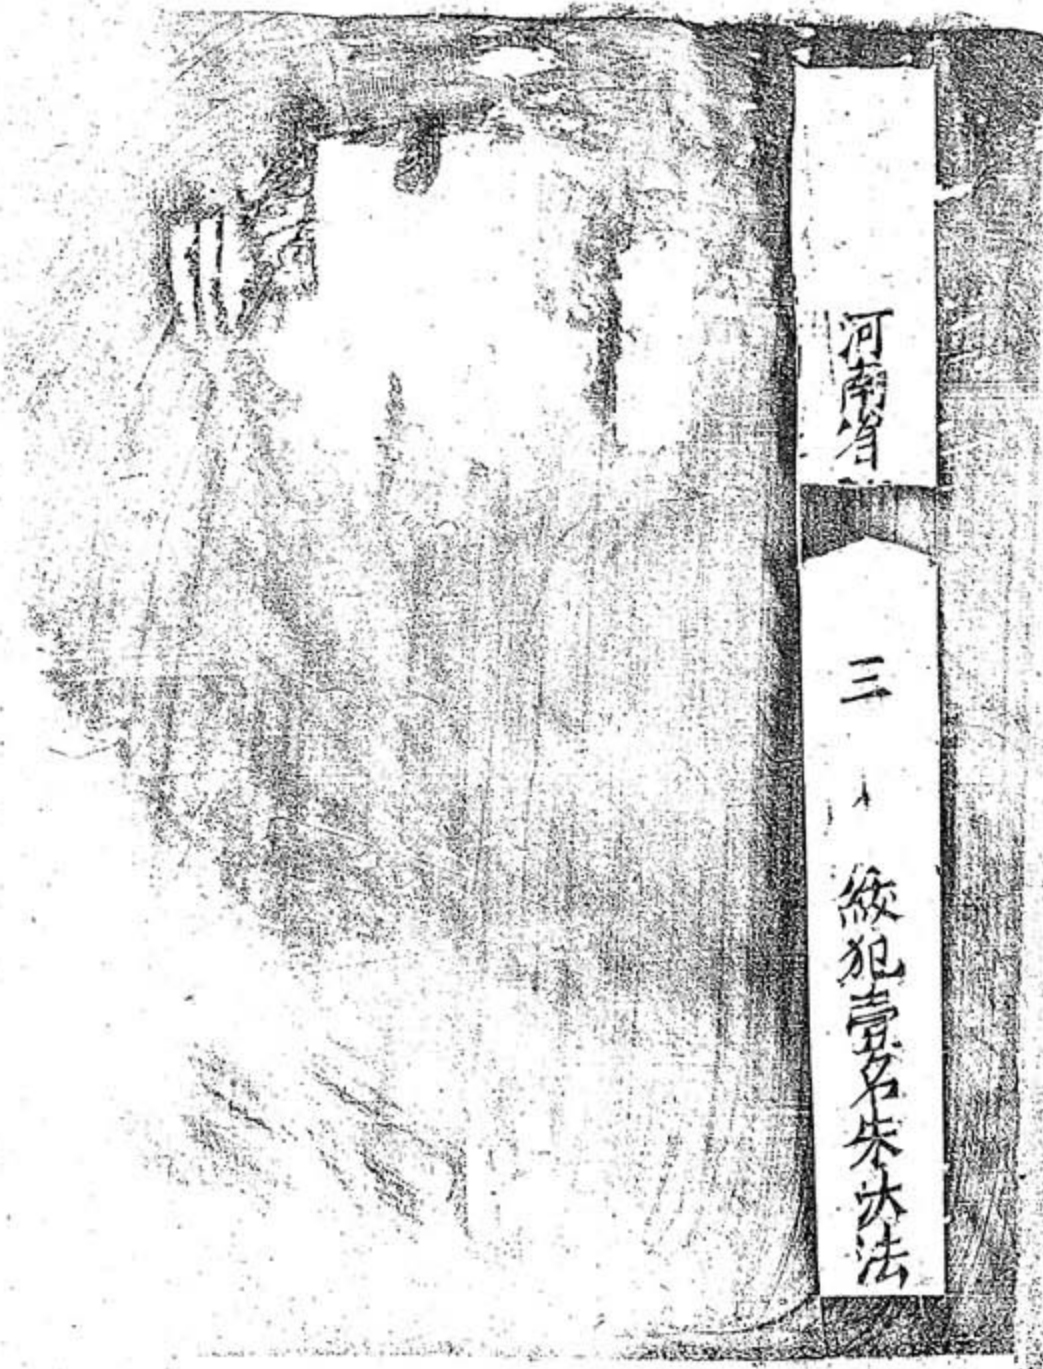 河南省
三
絞犯壹名朱大法